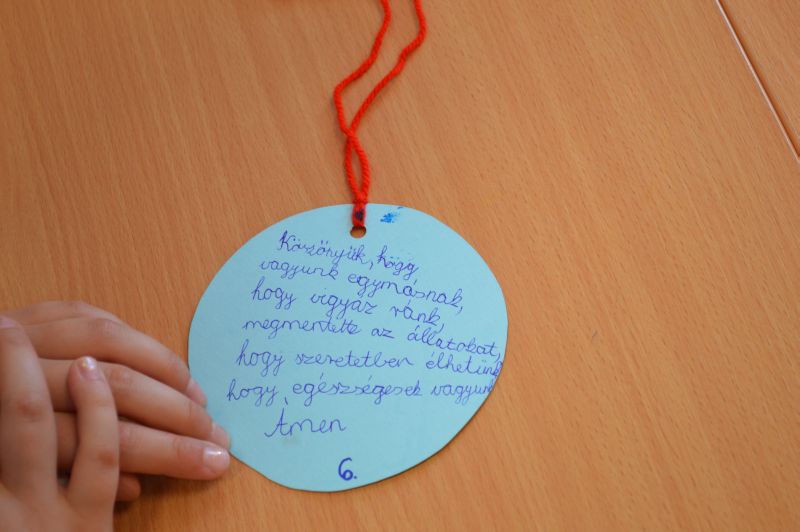 Köszönjük, hogy
vagyunk egymásnak,
hogy vigyáz ránk,
megmentette az állatokat,
hogy szeretetben élhetünk,
hogy egészségesek vagyunk
Ámen
6.